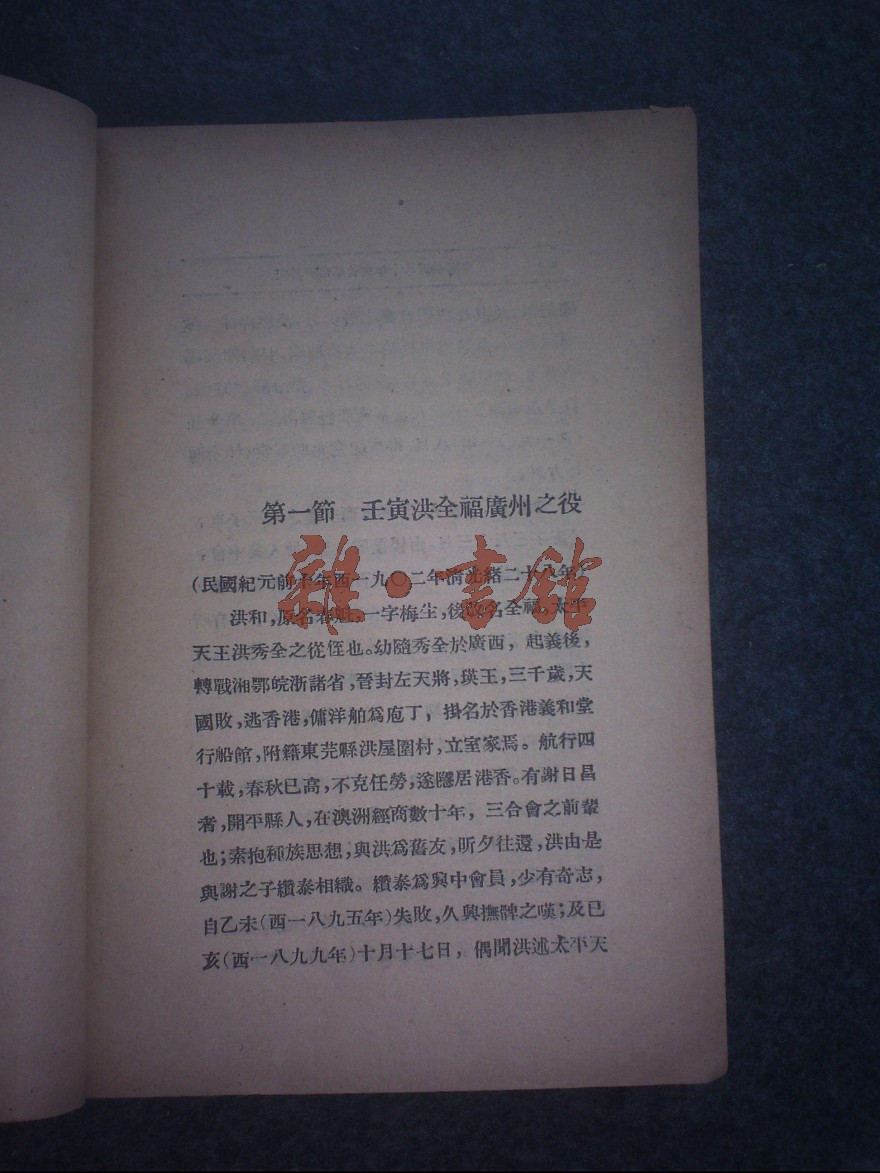 第一節　壬寅洪全福廣州之役
(民國紀元前十年西一九〇二年清光緒二十八年)
洪和，原名春魁，一字梅生，後改名全福，太平
天王洪秀全之從侄也。幼隨秀全於廣西，起義後，
轉戰湘鄂皖浙諸省，晉封左天將，瑛王，三千歲，天
國敗，逃香港，傭洋舶爲庖丁，掛名於香港義和堂
行船館，附籍東莞縣洪屋圍村，立室家焉。航行四
十載，春秋已高，不克任勞，遂隱居港香。有謝日昌
者，開平縣人，在澳洲經商數十年，三合會之前輩
也；素抱種族思想，與洪爲舊友，昕夕往還，洪由是
與謝之子纘泰相織。纘泰爲興中會員，少有奇志，
自乙未(西一八九五年)失敗，久興撫髀之嘆；及已
亥(西一八九九年)十月十七日，偶聞洪述太平天
雜·書館